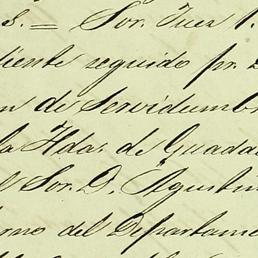 s. = Sor. Juez 1.
diente seguido pr.
n de Servidumbr
la Hda. de Guada
l Sor. D. Agustin
rno del Departame